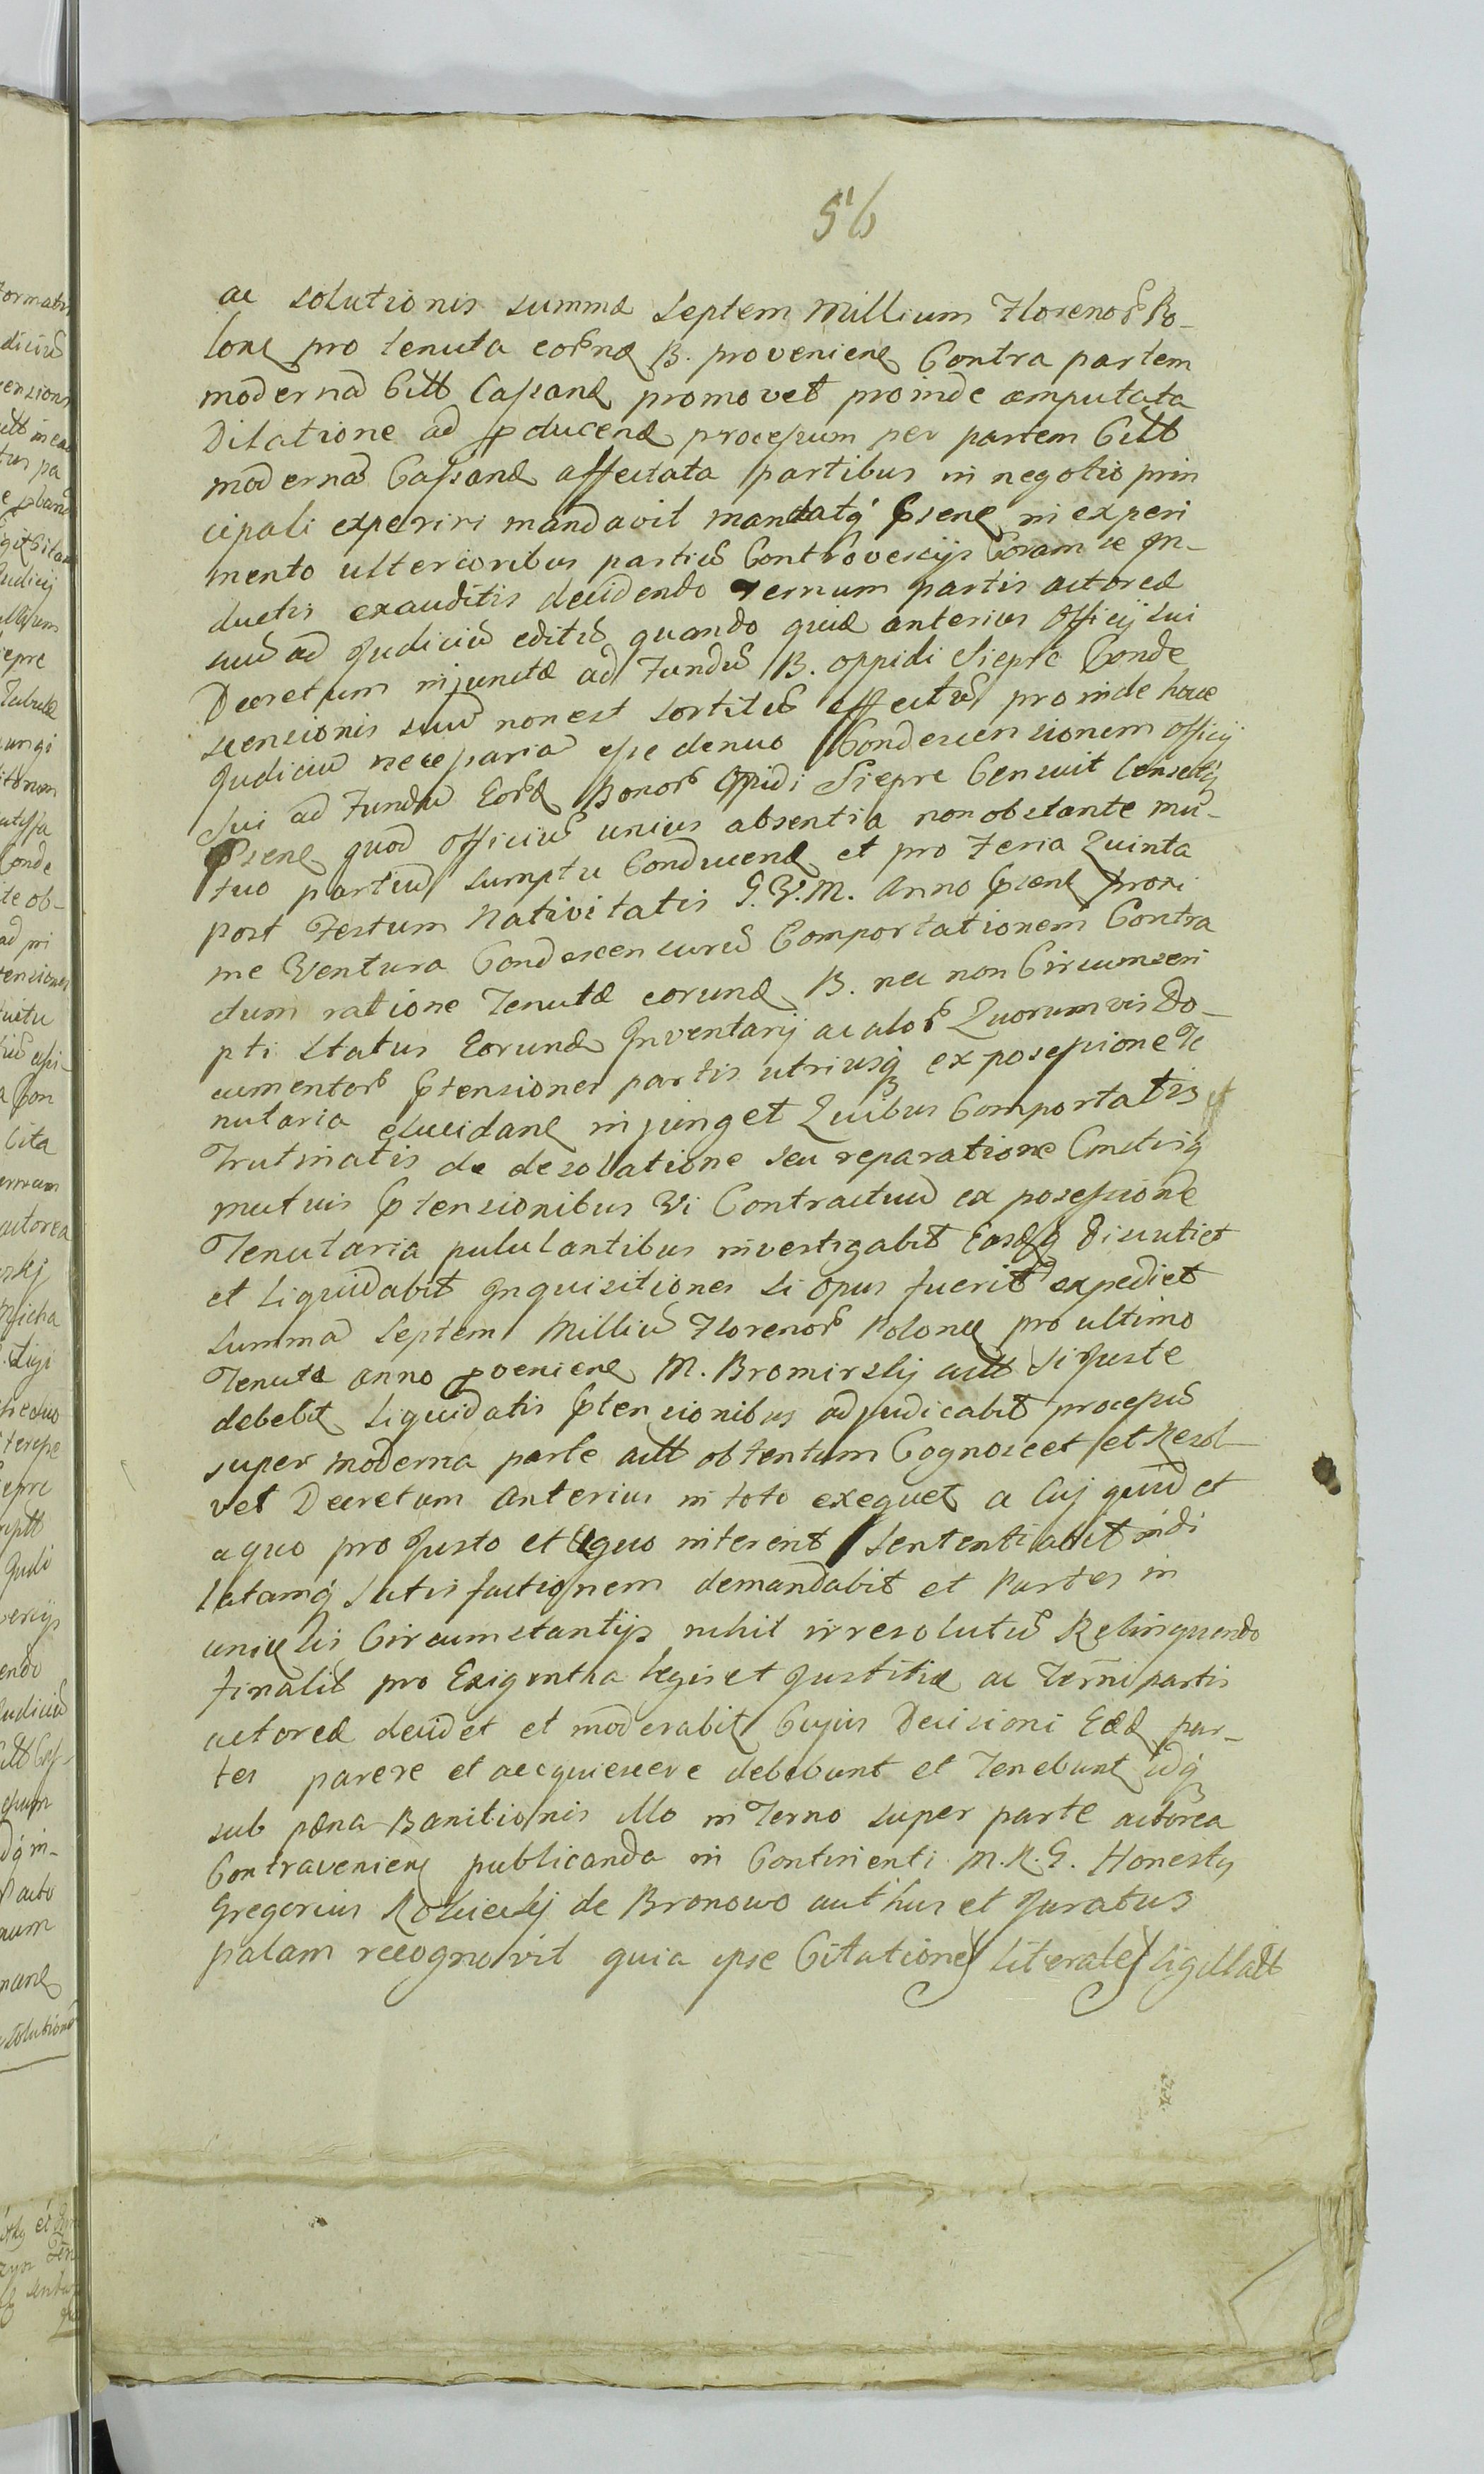 56
ac solutionis summæ Septem Millium Florenor Po-
lone pro tenuta eorñd B. provenien Contra partem
modernã Citt Cassand promovet proinde amputata
Dilatione ad pducend processum per partem Citt
modernã Cassand affectata partibus in negotio prin
cipali experiri mandavit mandatq psene in experi
mento ulterioribus partiũ Controversijs Coram se In-
ductis exauditis decidendo Ternum partis actoreæ
suũ ad Judiciũ editũ quando quid anterius Officij sui
Decretum injunctæ ad Fundũ B. oppidi Siepre Conde
scensionis suũ non est sortitũ effectũ proinde hocce
Judiciũ necessariã esse denuo Condescensionem Officij
sui ad Fundũ Eord Bonor Oppidi Siepre Censuit Censetq
psene quod Officiũ unius absentia non obstante mu-
tuo partiũ sumptu Conducend et pro Feria Quinta
post Festum Nativitatis G. V. M. Anno psene proxi
me Ventura Condescensurũ Comportationem Contra
ctum ratione Tenutæ eorund B. nec non Circumscri
pti Status Eorund Inventarij ac alor Quorumvis Do-
cumentor ptensiones partis utriusq ex possessione Te
nutaria elucidane injunget Quibus Comportatis et
Trutinatis de desolatione seu reparatione Cunctisq
mutuis ptensionibus Vi Contractuũ ex possessione
Tenutaria pululantibus investigabit Easdq discutiet
et liquidabit Inquisitiones si opus fuerit expediet
summã Septem Milliũ Florenor Polone pro ultimo
Tenutæ anno pvenienc M. Bromirskij actt si juste
debebit liquidatis ptensionibus adjudicabit processũ
super moderna parte actt obtentum Cognoscet et Resol-
vet Decretum Anterius in toto exequet a Cuj quid et
a quo pro justo et æquo interent Sententiabit indi
latamq Satisfactionem demandabit et Partes in
universis Circumstantijs nihil irresolutũ Relinquendo
finalit pro Exigentia legis et Justitiæ ac Terñi partis
actoreæ decidet et moderabit Cujus Decisioni Eæd par-
tes parere et acquiescere debebunt et Tenebunt idq
sub pæna Banitionis illo in Terno super parte actorea
Contravenienc publicanda in Continenti M. R. G. Honestus
Gregorius Rokicskj de Bronowo authus et Juratus
palam recognovit quia ipse Citationes literales sigillatt